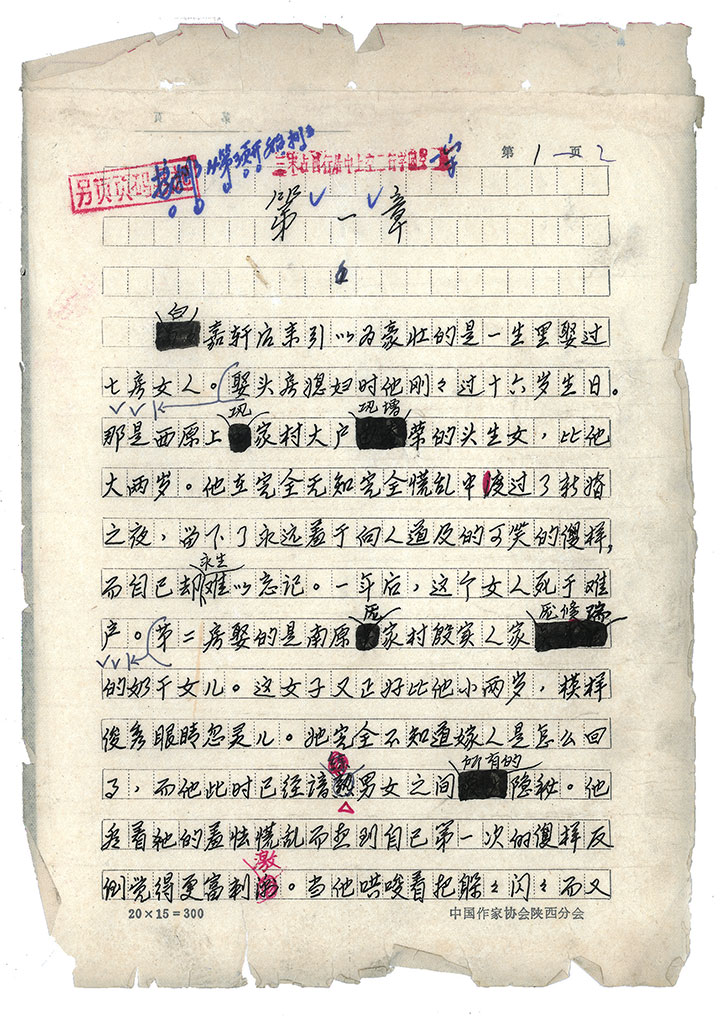 第 1 页 2
另页
第一章
白
嘉轩后来引以为豪壮的是一生里娶过
七房女人。娶头房媳妇时他刚々过十六岁生日。
巩 巩增
那是西原上家村大户荣的头生女，比他
大两岁。他在完全无知完全慌乱中度过了新婚
之夜，留下了永远羞于向人道及的可笑的傻样，
永生
而自己却难以忘记。一年后，这个女人死于难
庞 庞修瑞
产。第二房娶的是南原家村殷实人家
的奶干女儿。这女子又正好比他小两岁，模样
俊秀眼睛忽灵儿。她完全不知道嫁人是怎么回
所有的
了，而他此时已经谙熟男女之间隐秘。他
看着她的羞怯慌乱而想到自己第一次的傻样反
激
倒觉得更富刺。当他哄唆着把躲々闪々而又
20×15=300 中国作家协会陕西分会